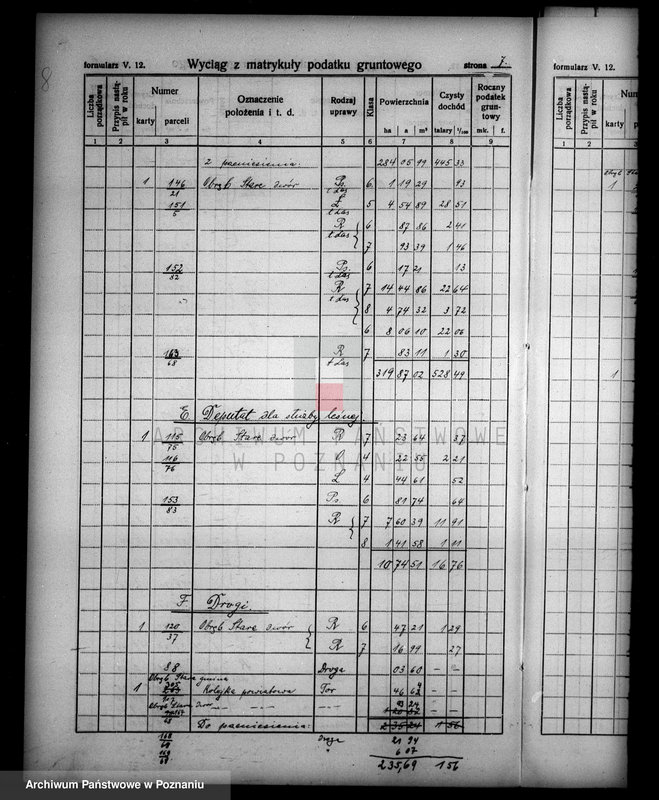 formularz V. 12. Wyciąg z matrykuły podatku gruntowego strona 7.
Liczba porządkowa Przypis nastąpił w roku Numer karty parceli Oznaczenie położenia i t. d. Rodzaj uprawy Klasa Powierzchnia ha a m² Czysty dochód talary 1/100 Roczny podatek gruntowy mk. f.
1 2 3 4 5 6 7 8 9
z paeniesienia: 284 05 99 445 33
1 146/21 Obręb Stare dwór Ps. t Las 6. 1 19 29 93
151/5 Ł t Las 5 4 54 89 28 51
R t Las 6 87 86 2 41
7 93 39 1 46
152/82 Ps t Las 6 17 21 13
R t Las 7 14 44 86 22 64
8 4 74 32 3 72
6 8 06 10 22 06
163/68 R t Las 7 83 11 1 30
319 87 02 528 49
E Deputat dla służby leśnej.
1 115/75 Obręb Stare dwór R 7 23 64 37
116/76 4 22 55 2 21
Ł 4 44 61 52
153/83 Ps 6 81 74 64
R 7 7 60 39 11 91
8 1 41 58 1 11
10 74 51 16 76
F. Drogi.
1 120/37 Obręb Stare dwór R 6 47 21 1 29
R 7 16 99 27
88 Droga 03 60 – –
Obręb Stare gmina
1 Kolejka powiatowa Tor 46 62 – –
Obręb Stare dwór
Do paeniesienia: 2 35 24 1 56
168/69 Droga 21 94
169/69 " 6 07
235,69 156
ARCHIWUM PAŃSTWOWE
W POZNANIU
formularz V. 12.
Liczba porządkowa Przypis nastąpił w roku karty
1 2
1
1
Archiwum Państwowe w Poznaniu